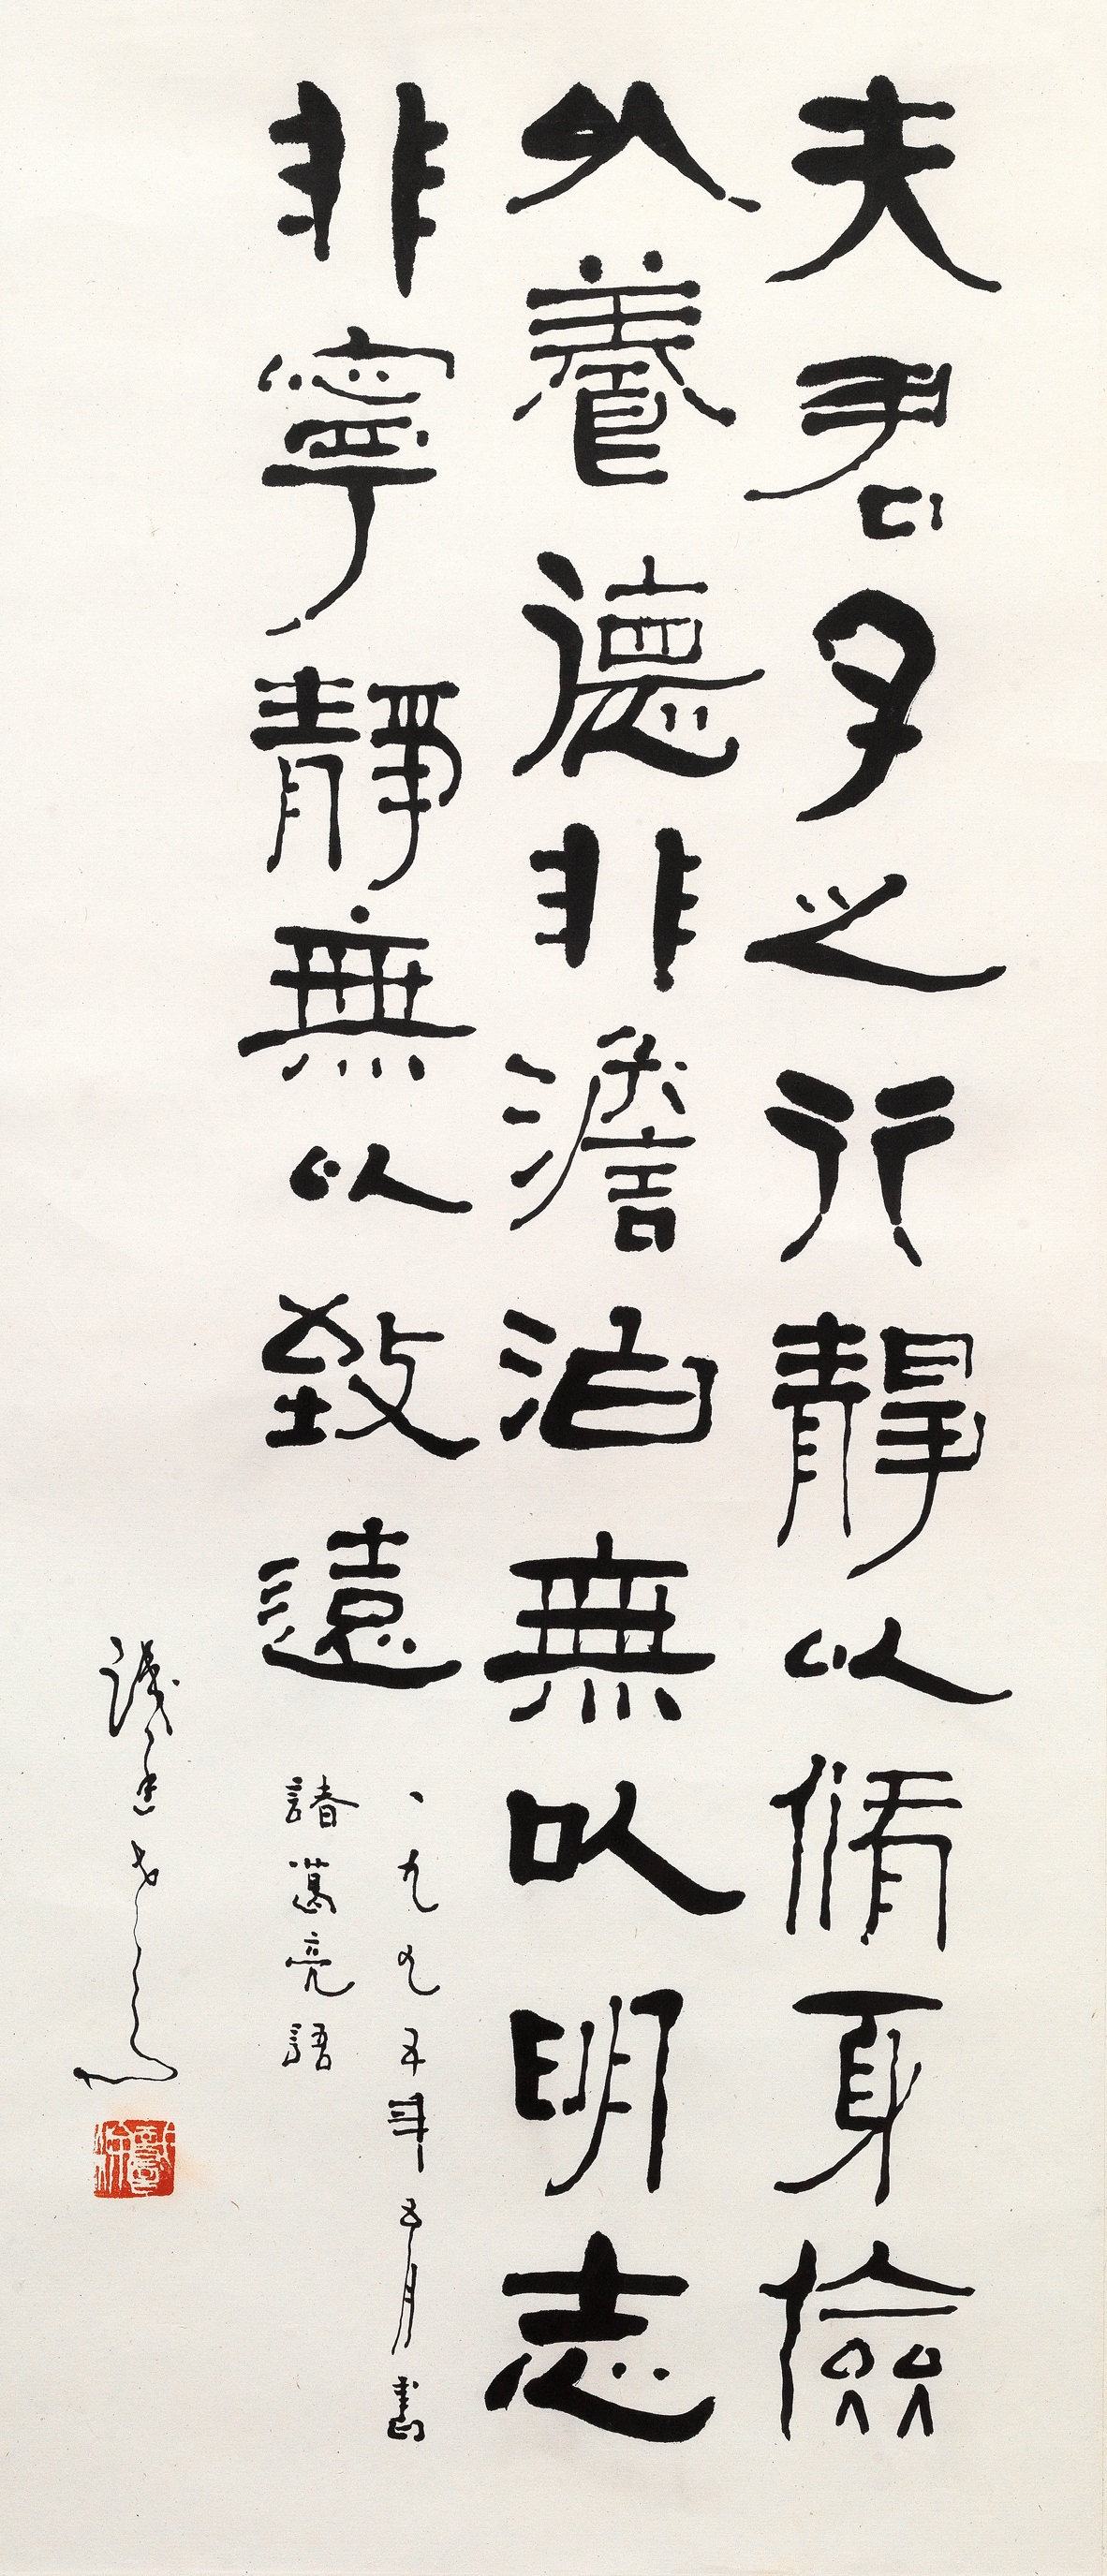 夫君子之行靜以脩身儉
以養德非澹泊無以明志
非寧靜無以致遠
一九九五年五月書
諸葛亮語